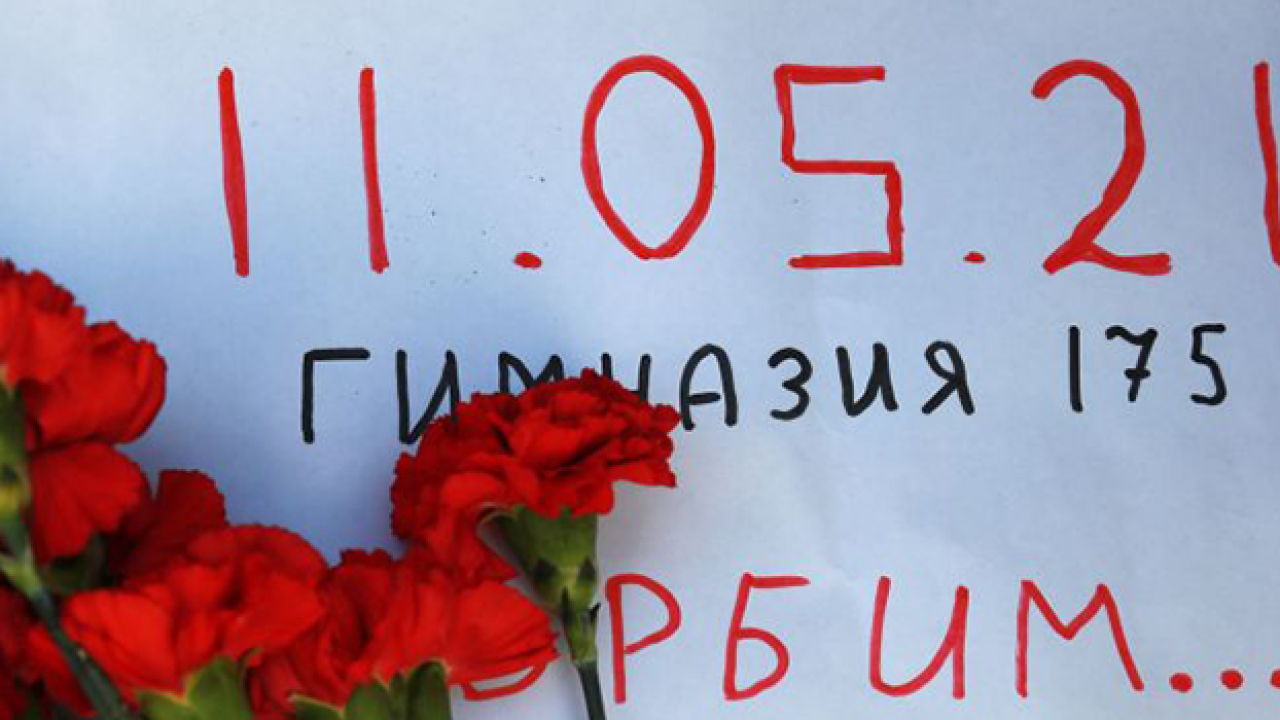 11.05.21
ГИМНАЗИЯ 175
СКОРБИМ...